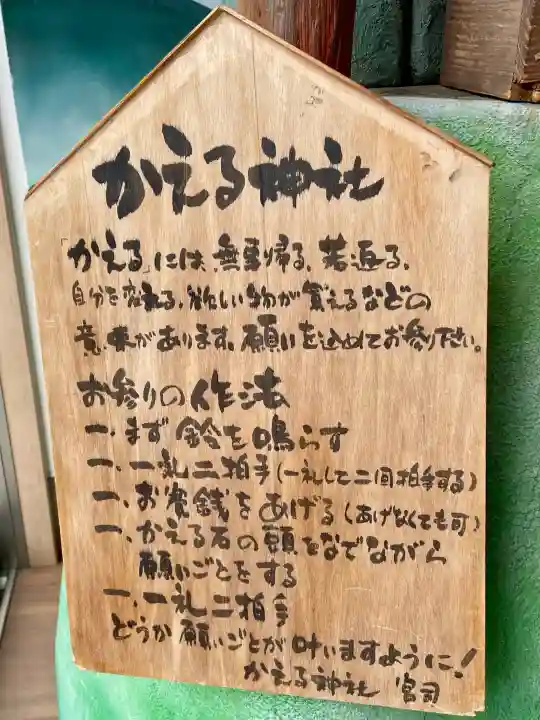 かえる神社
「かえる」には、無事帰る、若返る、
自分を変える、欲しい物が買えるなどの
意味があります。願いを込めてお参り下さい。
お参りの作法
一、まず鈴を鳴らす
一、一礼二拍手(一礼して二回拍手する)
一、お賽銭をあげる(あげなくても可)
一、かえる石の頭をなでながら
願いごとをする
一、一礼二拍手
どうか願いごとが叶いますように!
かえる神社 宮司